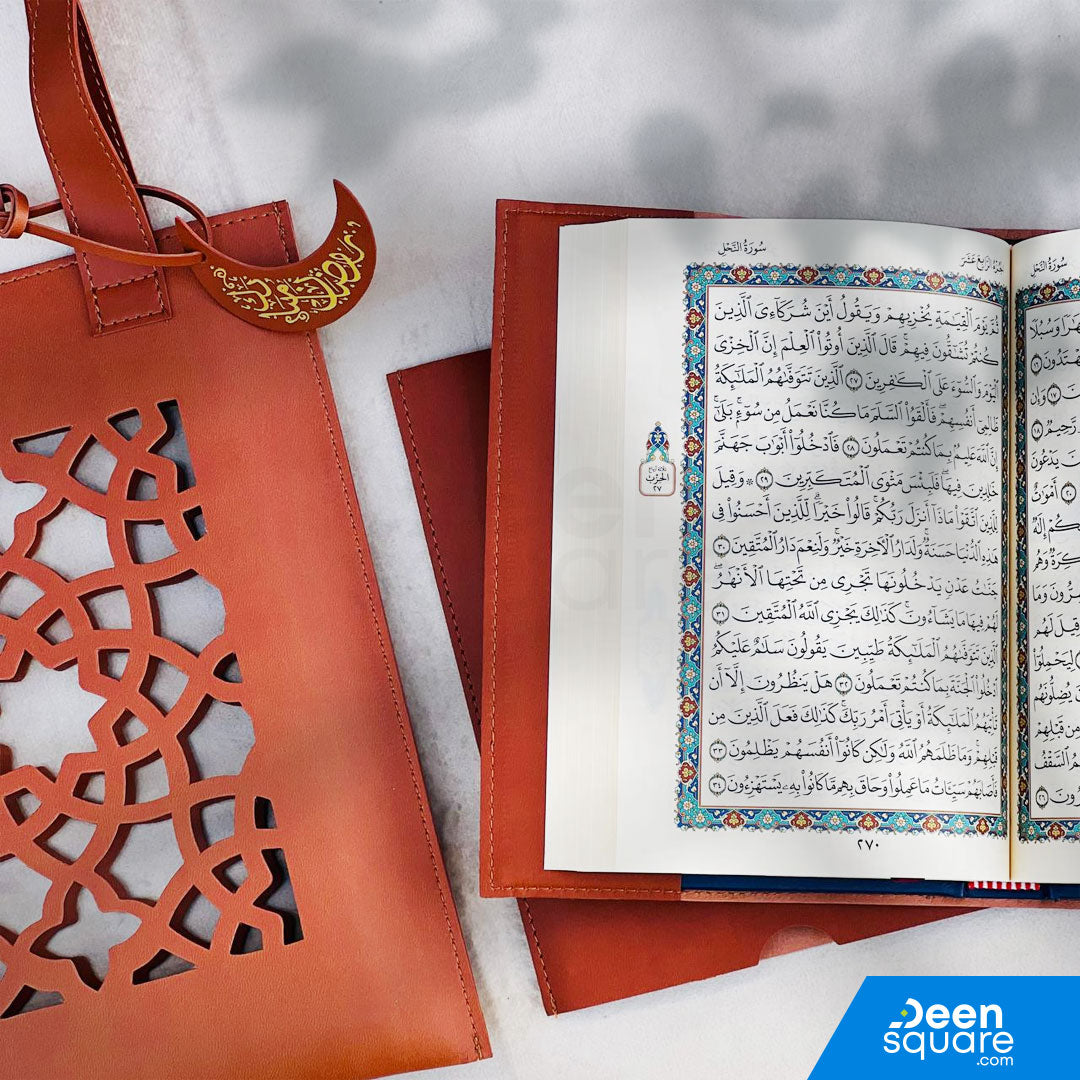 رمضان مبارك
سُورَةُ النَّحْلِ
الجُزْءُ الرَّابِعَ عَشَرَ
ثُمَّ يَوْمَ ٱلْقِيَٰمَةِ يُخْزِيهِمْ وَيَقُولُ أَيْنَ شُرَكَآءِىَ ٱلَّذِينَ
كُنتُمْ تُشَٰٓقُّونَ فِيهِمْ ۚ قَالَ ٱلَّذِينَ أُوتُوا۟ ٱلْعِلْمَ إِنَّ ٱلْخِزْىَ
ٱلْيَوْمَ وَٱلسُّوٓءَ عَلَى ٱلْكَٰفِرِينَ ٢٧ ٱلَّذِينَ تَتَوَفَّىٰهُمُ ٱلْمَلَٰٓئِكَةُ
ظَالِمِىٓ أَنفُسِهِمْ ۖ فَأَلْقَوُا۟ ٱلسَّلَمَ مَا كُنَّا نَعْمَلُ مِن سُوٓءٍۭ ۚ بَلَىٰٓ
إِنَّ ٱللَّهَ عَلِيمٌۢ بِمَا كُنتُمْ تَعْمَلُونَ ٢٨ فَٱدْخُلُوٓا۟ أَبْوَٰبَ جَهَنَّمَ
خَٰلِدِينَ فِيهَا ۖ فَلَبِئْسَ مَثْوَى ٱلْمُتَكَبِّرِينَ ٢٩ ۞ وَقِيلَ
لِلَّذِينَ ٱتَّقَوْا۟ مَاذَآ أَنزَلَ رَبُّكُمْ ۚ قَالُوا۟ خَيْرًا ۗ لِّلَّذِينَ أَحْسَنُوا۟ فِى
هَٰذِهِ ٱلدُّنْيَا حَسَنَةٌ ۚ وَلَدَارُ ٱلْءَاخِرَةِ خَيْرٌ ۚ وَلَنِعْمَ دَارُ ٱلْمُتَّقِينَ ٣٠
جَنَّٰتُ عَدْنٍ يَدْخُلُونَهَا تَجْرِى مِن تَحْتِهَا ٱلْأَنْهَٰرُ ۖ
لَهُمْ فِيهَا مَا يَشَآءُونَ ۚ كَذَٰلِكَ يَجْزِى ٱللَّهُ ٱلْمُتَّقِينَ ٣١
ٱلَّذِينَ تَتَوَفَّىٰهُمُ ٱلْمَلَٰٓئِكَةُ طَيِّبِينَ ۙ يَقُولُونَ سَلَٰمٌ عَلَيْكُمُ
ٱدْخُلُوا۟ ٱلْجَنَّةَ بِمَا كُنتُمْ تَعْمَلُونَ ٣٢ هَلْ يَنظُرُونَ إِلَّآ أَن
تَأْتِيَهُمُ ٱلْمَلَٰٓئِكَةُ أَوْ يَأْتِىَ أَمْرُ رَبِّكَ ۚ كَذَٰلِكَ فَعَلَ ٱلَّذِينَ مِن
قَبْلِهِمْ ۚ وَمَا ظَلَمَهُمُ ٱللَّهُ وَلَٰكِن كَانُوٓا۟ أَنفُسَهُمْ يَظْلِمُونَ ٣٣
فَأَصَابَهُمْ سَيِّـَٔاتُ مَا عَمِلُوا۟ وَحَاقَ بِهِم مَّا كَانُوا۟ بِهِۦ يَسْتَهْزِءُونَ ٣٤
الحِزْب
٢٧
٢٧٠
سُورَةُ النَّحْلِ
وَسُبُلًا
١٧ وَإِن
رَّحِيمٌ ١٨
يَدْعُونَ
٢٠ أَمْوَٰتٌ
وَهُم
وَمَا
قِيلَ لَهُم
لِيَحْمِلُوٓا۟
يُضِلُّونَهُم
مِن قَبْلِهِمْ
ٱلسَّقْفُ
٢٦
Deen
square
.com